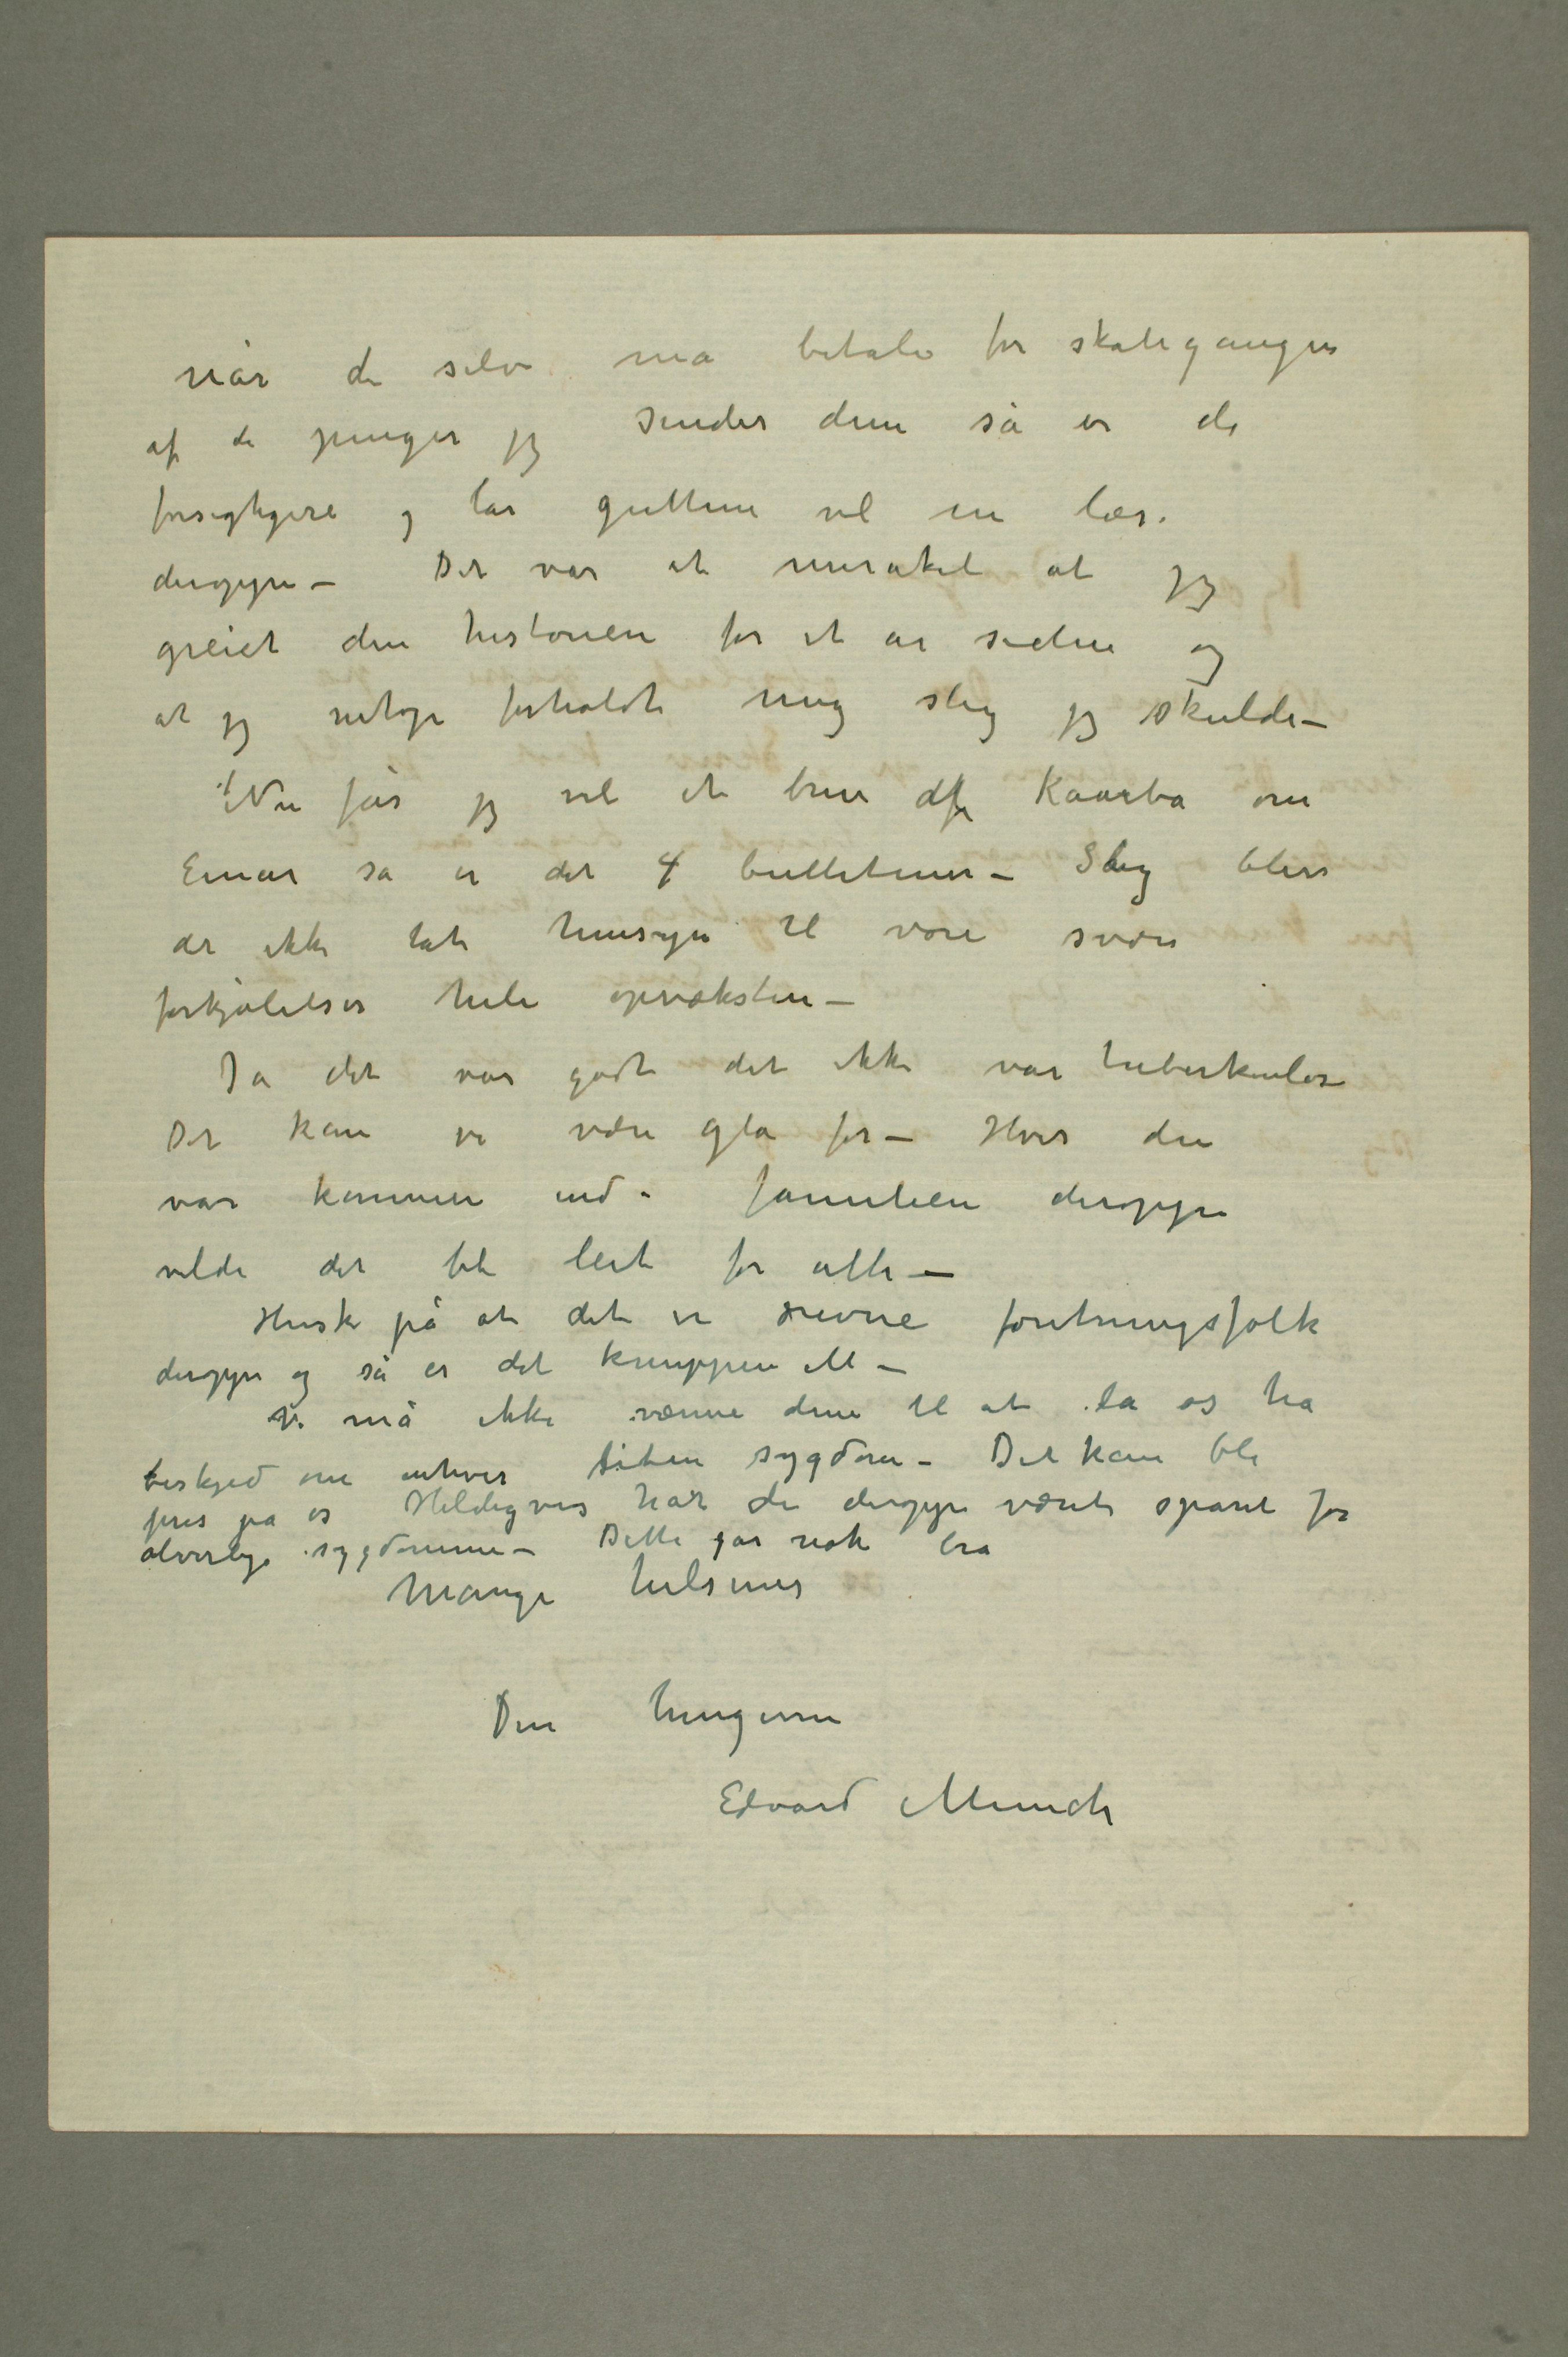 når de selv må betale for skolegangen
af de penger jeg sender dem så er de
forsigtigere og lar guttene vel
deroppe – Det var et mirakel at jeg
greiet den historien for et år siden og
at jeg netop forholdt mig slig jeg skulde –
Nu får jeg vel et brev af Kaarbø om
Einar så er det 4 bulletiner – Slig blev
det ikke tat hensyn til våre svære
forkjølelser hele opvæksten –
Ja det var godt det ikke var tuberkulose
Det kan vi være gla for – Hvis den
var kommen ind i familien deroppe
vilde det bli leit for alle –
Husk på at det er drevne forretningsfolk
deroppe og så er det kneppen til –
Vi må ikke vænne dem til at la os ha
beskjed om enhver liten sygdom – Det kan bli
pres på os Heldigvis har de deroppe været sparet for
alverlige sygdomme – Dette går nok bra
Mange hilsener
Din hengivne
Edvard Munch